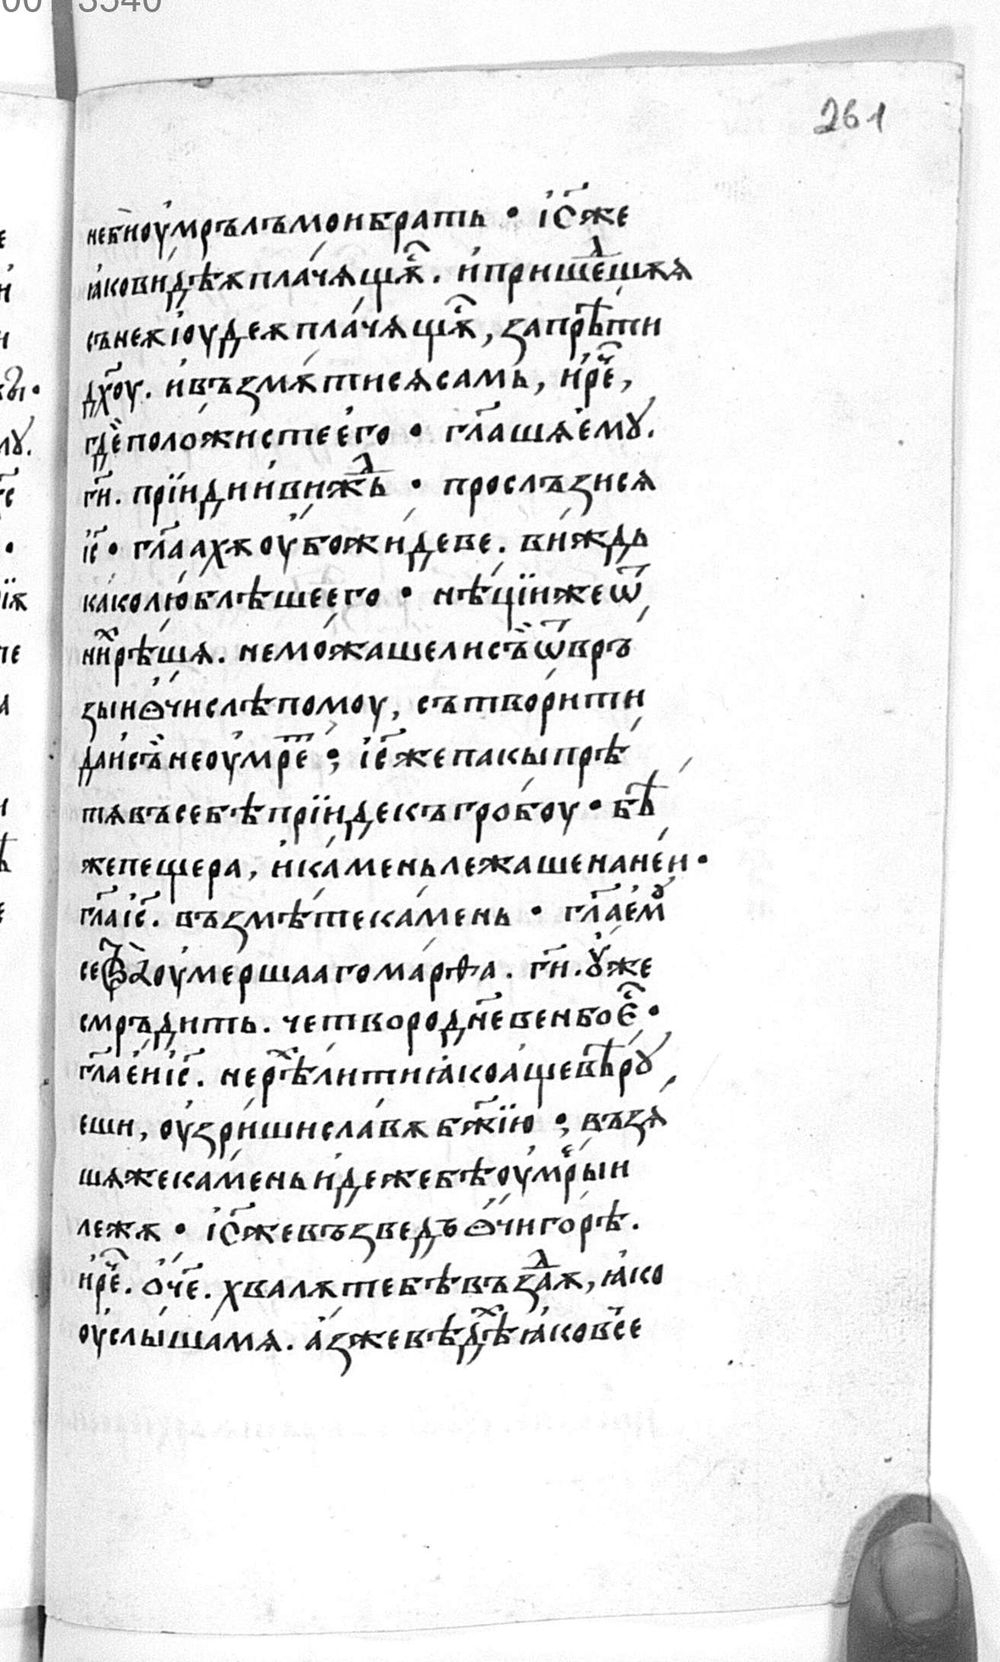 261
не бѝ оу҆мръль мои брать • і҆с҃ же
ꙗ҆ко видѣ ѫ пла́чѧщѫ̑ . и҆ пришеⷣшѫѧ
съ неѫ і҆оудеѫ пла́чѧщѫ̑ , запрѣ́ти
дх҃оу . и҆ възмѫ́ти сѧ самь , и҆ рⷱ҇е ,
гдѐ положи́сте е҆го • гл҃ашѧ є҆мꙋ .
гн҃и . прїиди и҆ вижⷣь • просльзи сѧ
і҆с҃ • гл҃аахѫ оу҆бо жи́деве . ви́ждь
ка́ко лю́блѣше е҆го • нѣ́цїи же ѿ
ни́ⷯ рѣшѧ . не мо́жаше ли съ̏ ѿвръ
зыи ѻ҆́чи слѣпомоу , сътвори́ти
да и҆ съ̏ не оу҆мрⷮе ; і҆с҃ же пакы прѣ
тѧ въ себѣ прїиде къ гробоу • бѣ́
же пещера , и҆ ка́мень лежаше на не́и •
гл҃а і҆с҃ . възмѣ́те ка́мень • гл҃а є҆мꙋ
се оу҆мершааго марѳа . гн҃и . ꙋ҆́же
смръди́ть . четвородн҃евень бо є҆ⷭ •
гл҃а е҆и і҆с҃ . не рⷯѣ ли ти ꙗ҆ко а҆ще вѣ́рꙋ
еши , оу҆зри́ши славѫ бж҃їю ; възѧ́
шѧ же ка́мень и҆деже бѣ оу҆мрⷭыи
лежѫ • і҆с҃ же възведъ ѻ҆́чи горѣ́ .
и҆ рⷱ҇е . о҆́ч҃е . хвалѫ тебѣ възⷣаѫ , ꙗ҆ко
оу҆слы́ша мѧ . а҆́з же вѣдⷯѣ ꙗ҆ко все